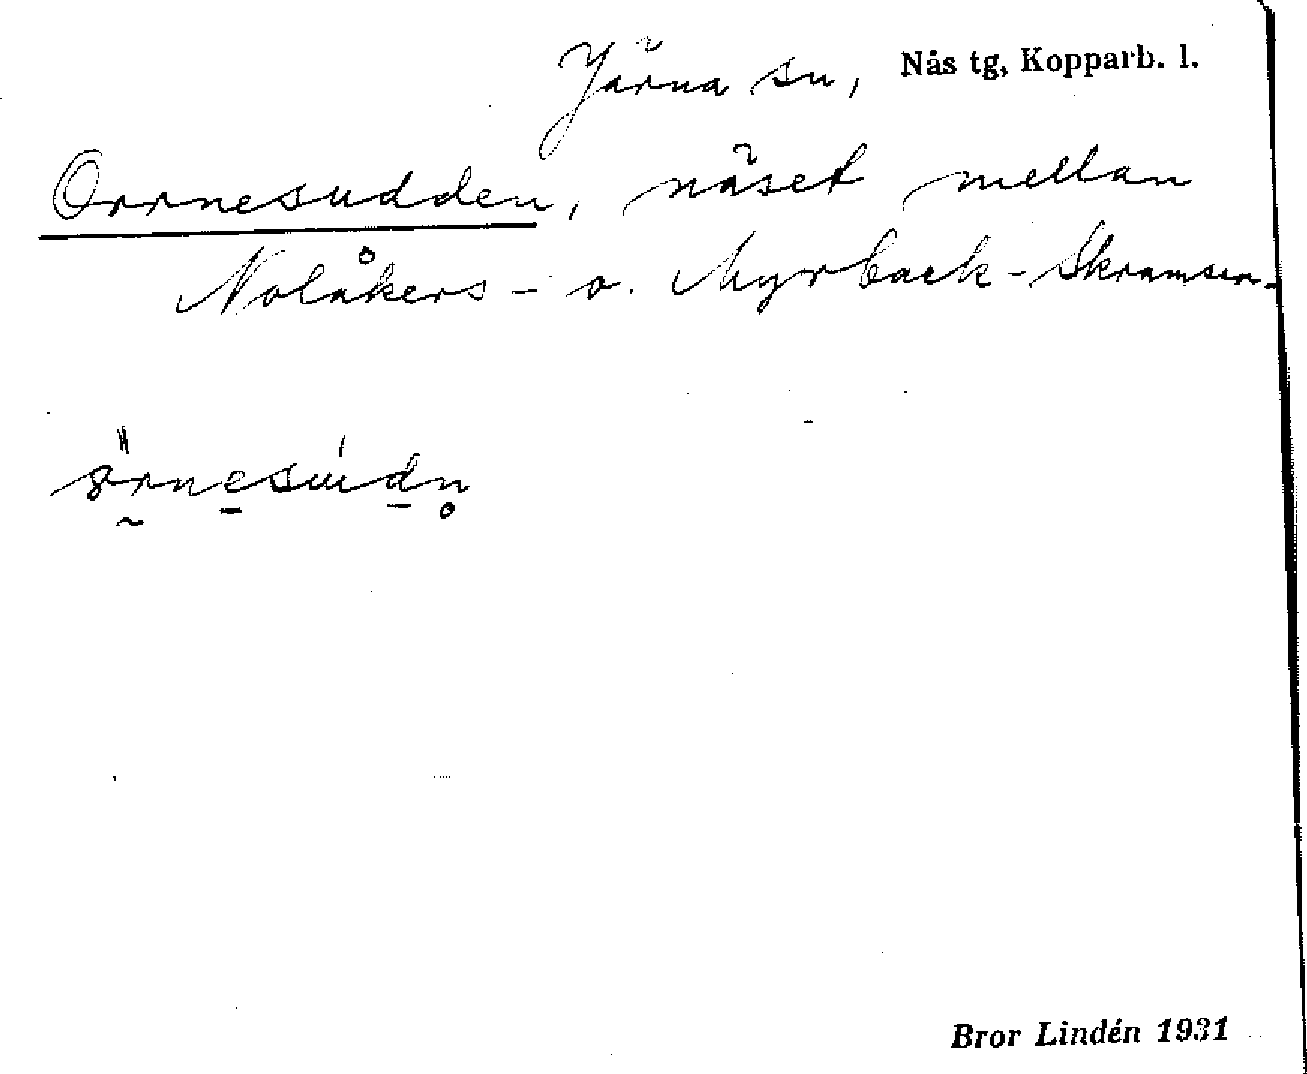 Järna sn, Nås tg, Kopparb. l.
Orrnesudden, näset mellan
Nolåkers- o. Myrback-Skramsen.
Bror Lindén 1931